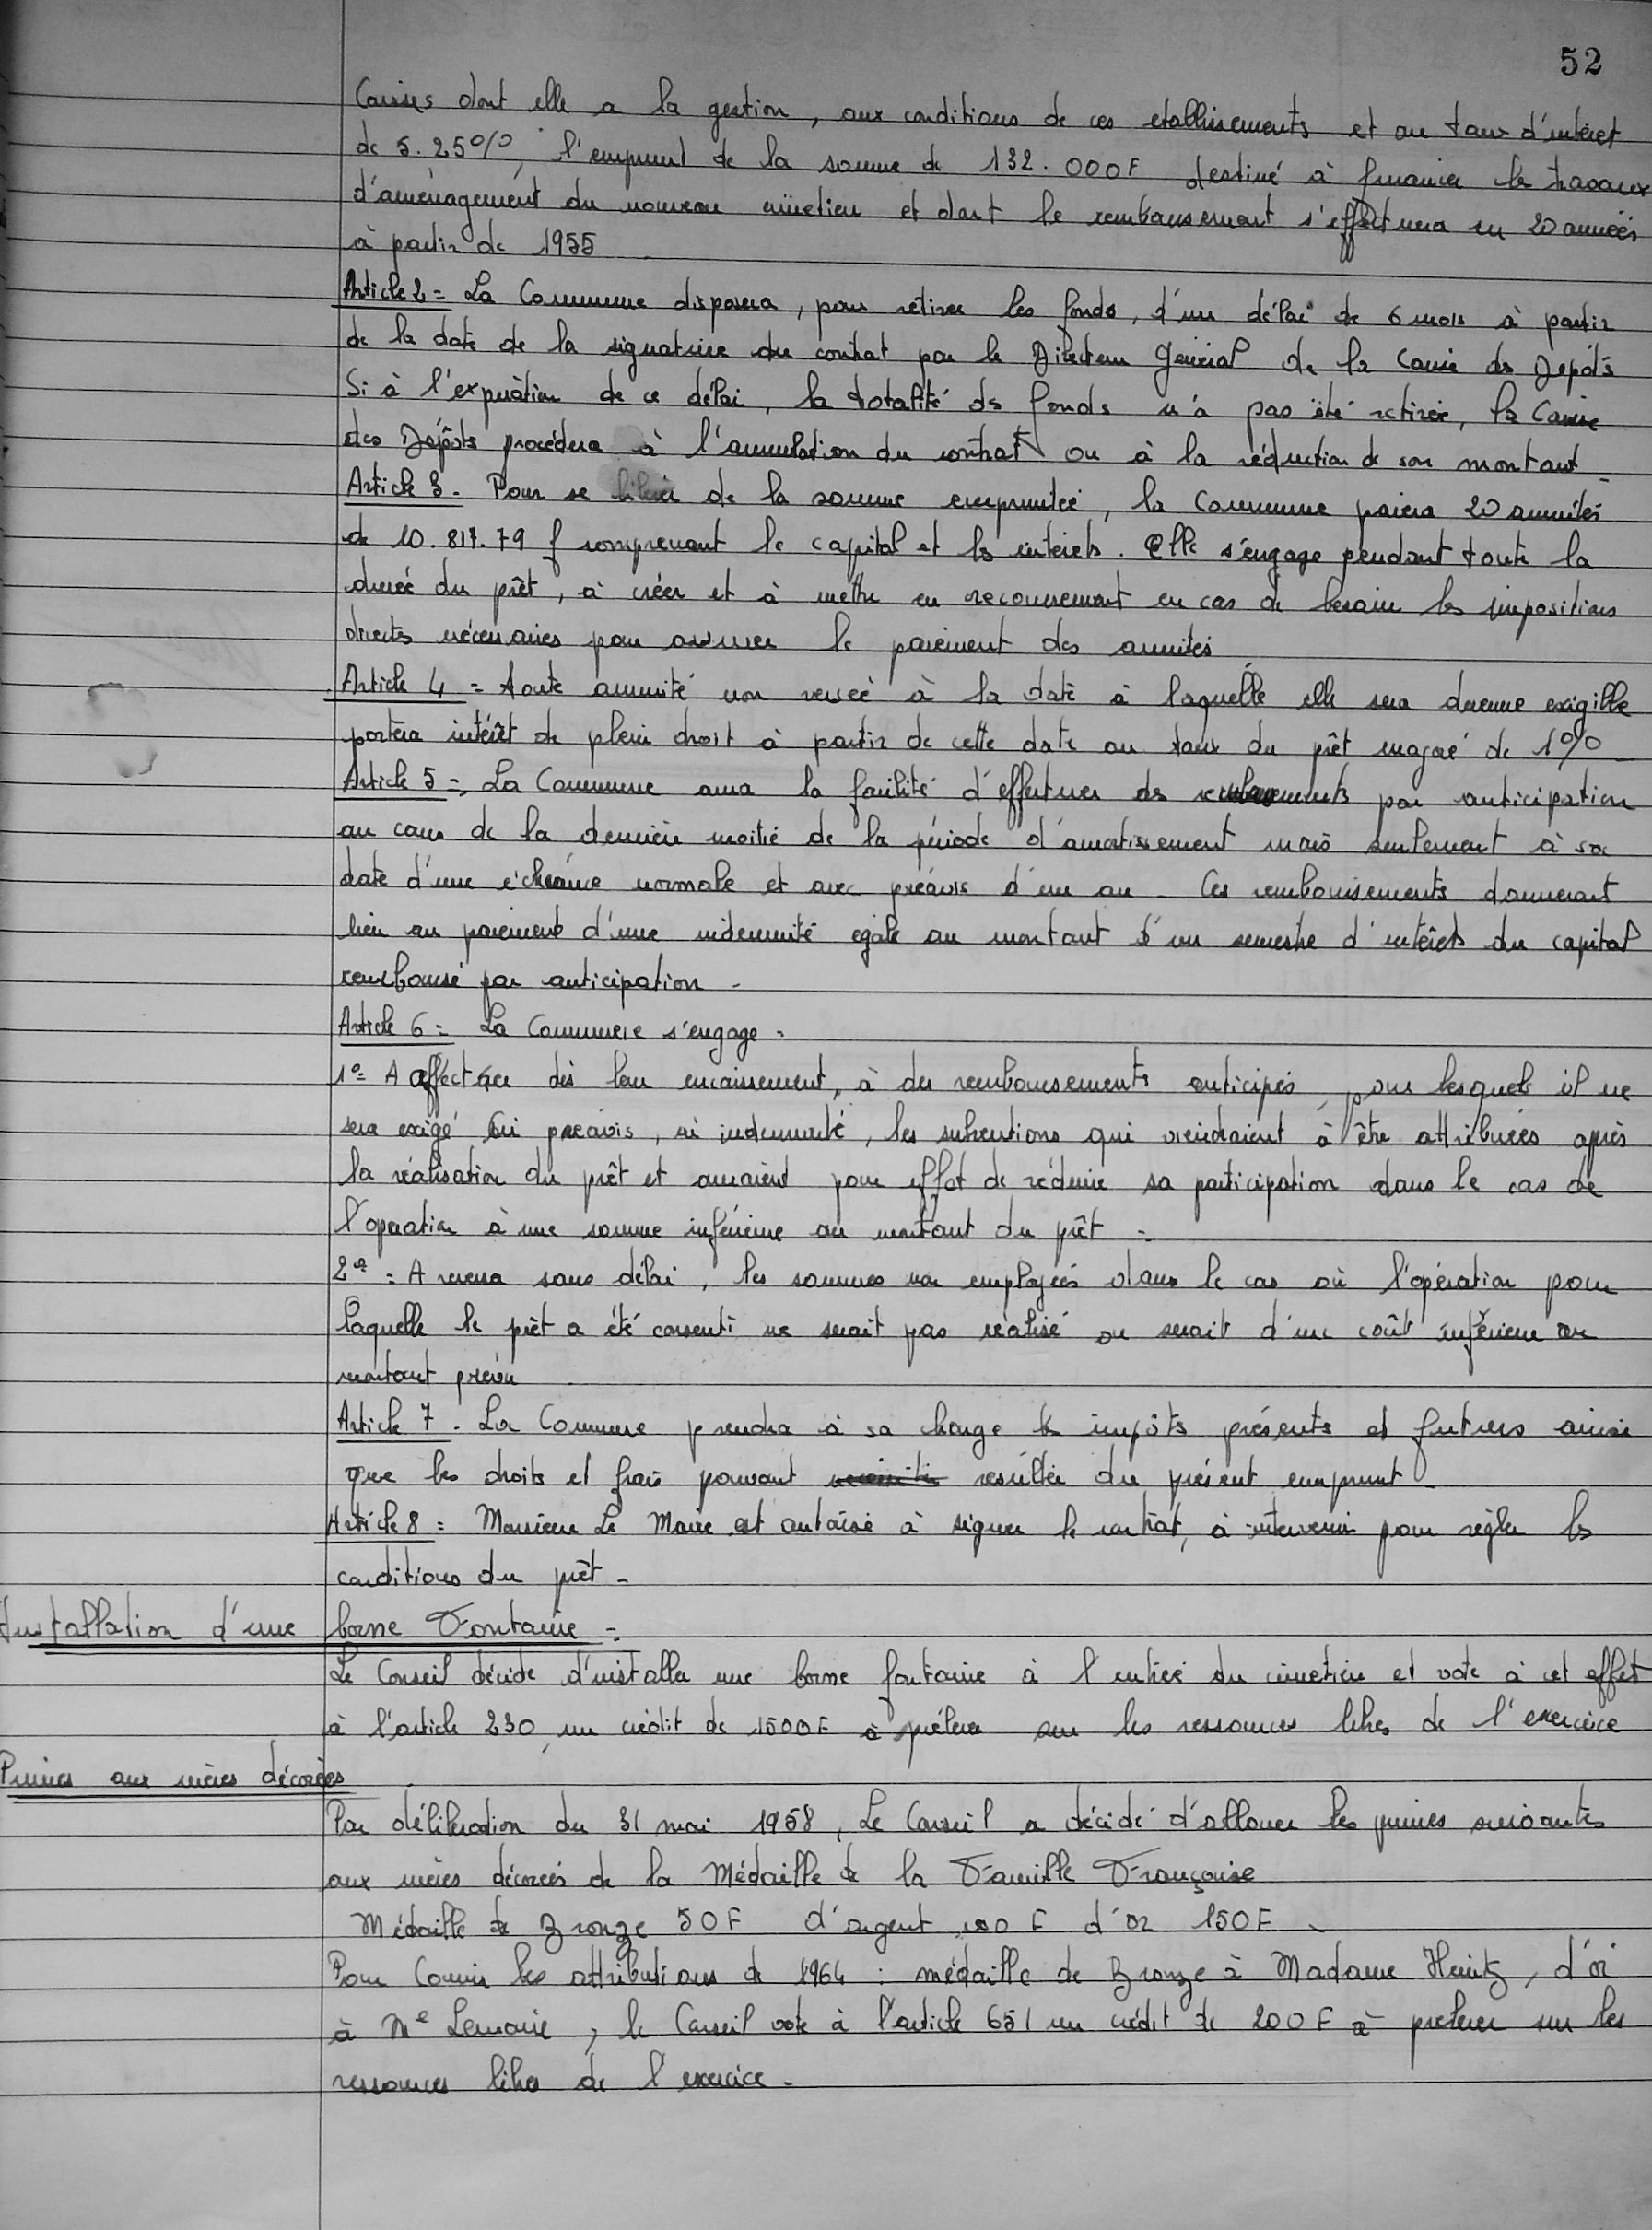 52
Caisses dont elle a la gestion, aux conditions de ces etablissements et au taux d'intéret
de 5.25%, l'emprunt de la somme de 132.000F destiné à financer les travaux
d'aménagement du nouveau cimetière et dont le remboursement s'effectuera en 20 années
à partir de 1955
Article 2 = La Commune disposera, pour retirer les fonds, d'un délai de 6 mois à partir
de la date de la signature du contrat par le Directeur général de la Caisse des Dépôts
Si à l'expiration de ce délai, la totalité des fonds n'a pas été retirée, la Caisse
des Dépôts procédera à l'annulation du contrat ou à la réduction de son montant
Article 3. Pour se libérer de la somme empruntée, la Commune paiera 20 annuités
de 10.817.79 f comprenant le capital et les intérets. Elle s'engage pendant toute la
durée du prêt, à créer et à mettre en recouvrement en cas de besoin les impositions
directes nécessaires pour assurer le paiement des annuités
Article 4 = Toute annuité non versée à la date à laquelle elle sera devenue exigible
portera intérêt de plein droit à partir de cette date au taux du prêt majoré de 1%
Article 5 = La Commune aura la facilité d'effectuer des remboursements par anticipation
au cours de la dernière moitié de la période d'amortissement mais seulement à sa
date d'une échéance normale et avec préavis d'un an - Ces remboursements donneront
lieu au paiement d'une indemnité egale au montant d'un semestre d'intérêts du capital
remboursé par anticipation -
Article 6 = La Commune s'engage =
1° = A affecter dès leur encaissement, à des remboursements anticipés, pour lesquels il ne
sera exigé ni préavis, ni indemnité, les subventions qui viendraient à être attribuées après
la réalisation du prêt et auraient pour effet de réduire sa participation dans le cas de
l'opération à une somme inférieure au montant du prêt -
2° = A reverser sans délai, les sommes non employées dans le cas où l'opération pour
laquelle le prêt a été consenti ne serait pas réalisé ou serait d'un coût inférieur au
montant prévu
Article 7. La Commune prendra à sa charge les impôts présents et futurs ainsi
que les droits et frais pouvant résulter du présent emprunt
Article 8 = Monsieur Le Maire est autorisé à signer le contrat, à intervenir pour régler les
conditions du prêt -
Installation d'une borne Fontaine =
Le Conseil décide d'installer une borne fontaine à l'entrée du cimetière et vote à cet effet
à l'article 230 un crédit de 1500F à prélever sur les ressources libres de l'exercice
Primes aux mères décorées
Par délibération du 31 mai 1958, Le Conseil a décidé d'allouer les primes suivantes
aux mères décorées de la Médaille de la Famille Française
Médaille de Bronze 50F d'argent 100 F d'or 150F -
Pour Couvrir les attributions de 1964 : médaille de Bronze à Madame Heintz, d'or
à Me Lemoine, le Conseil vote à l'article 651 un crédit de 200F à prelever sur les
ressources libres de l'exercice -